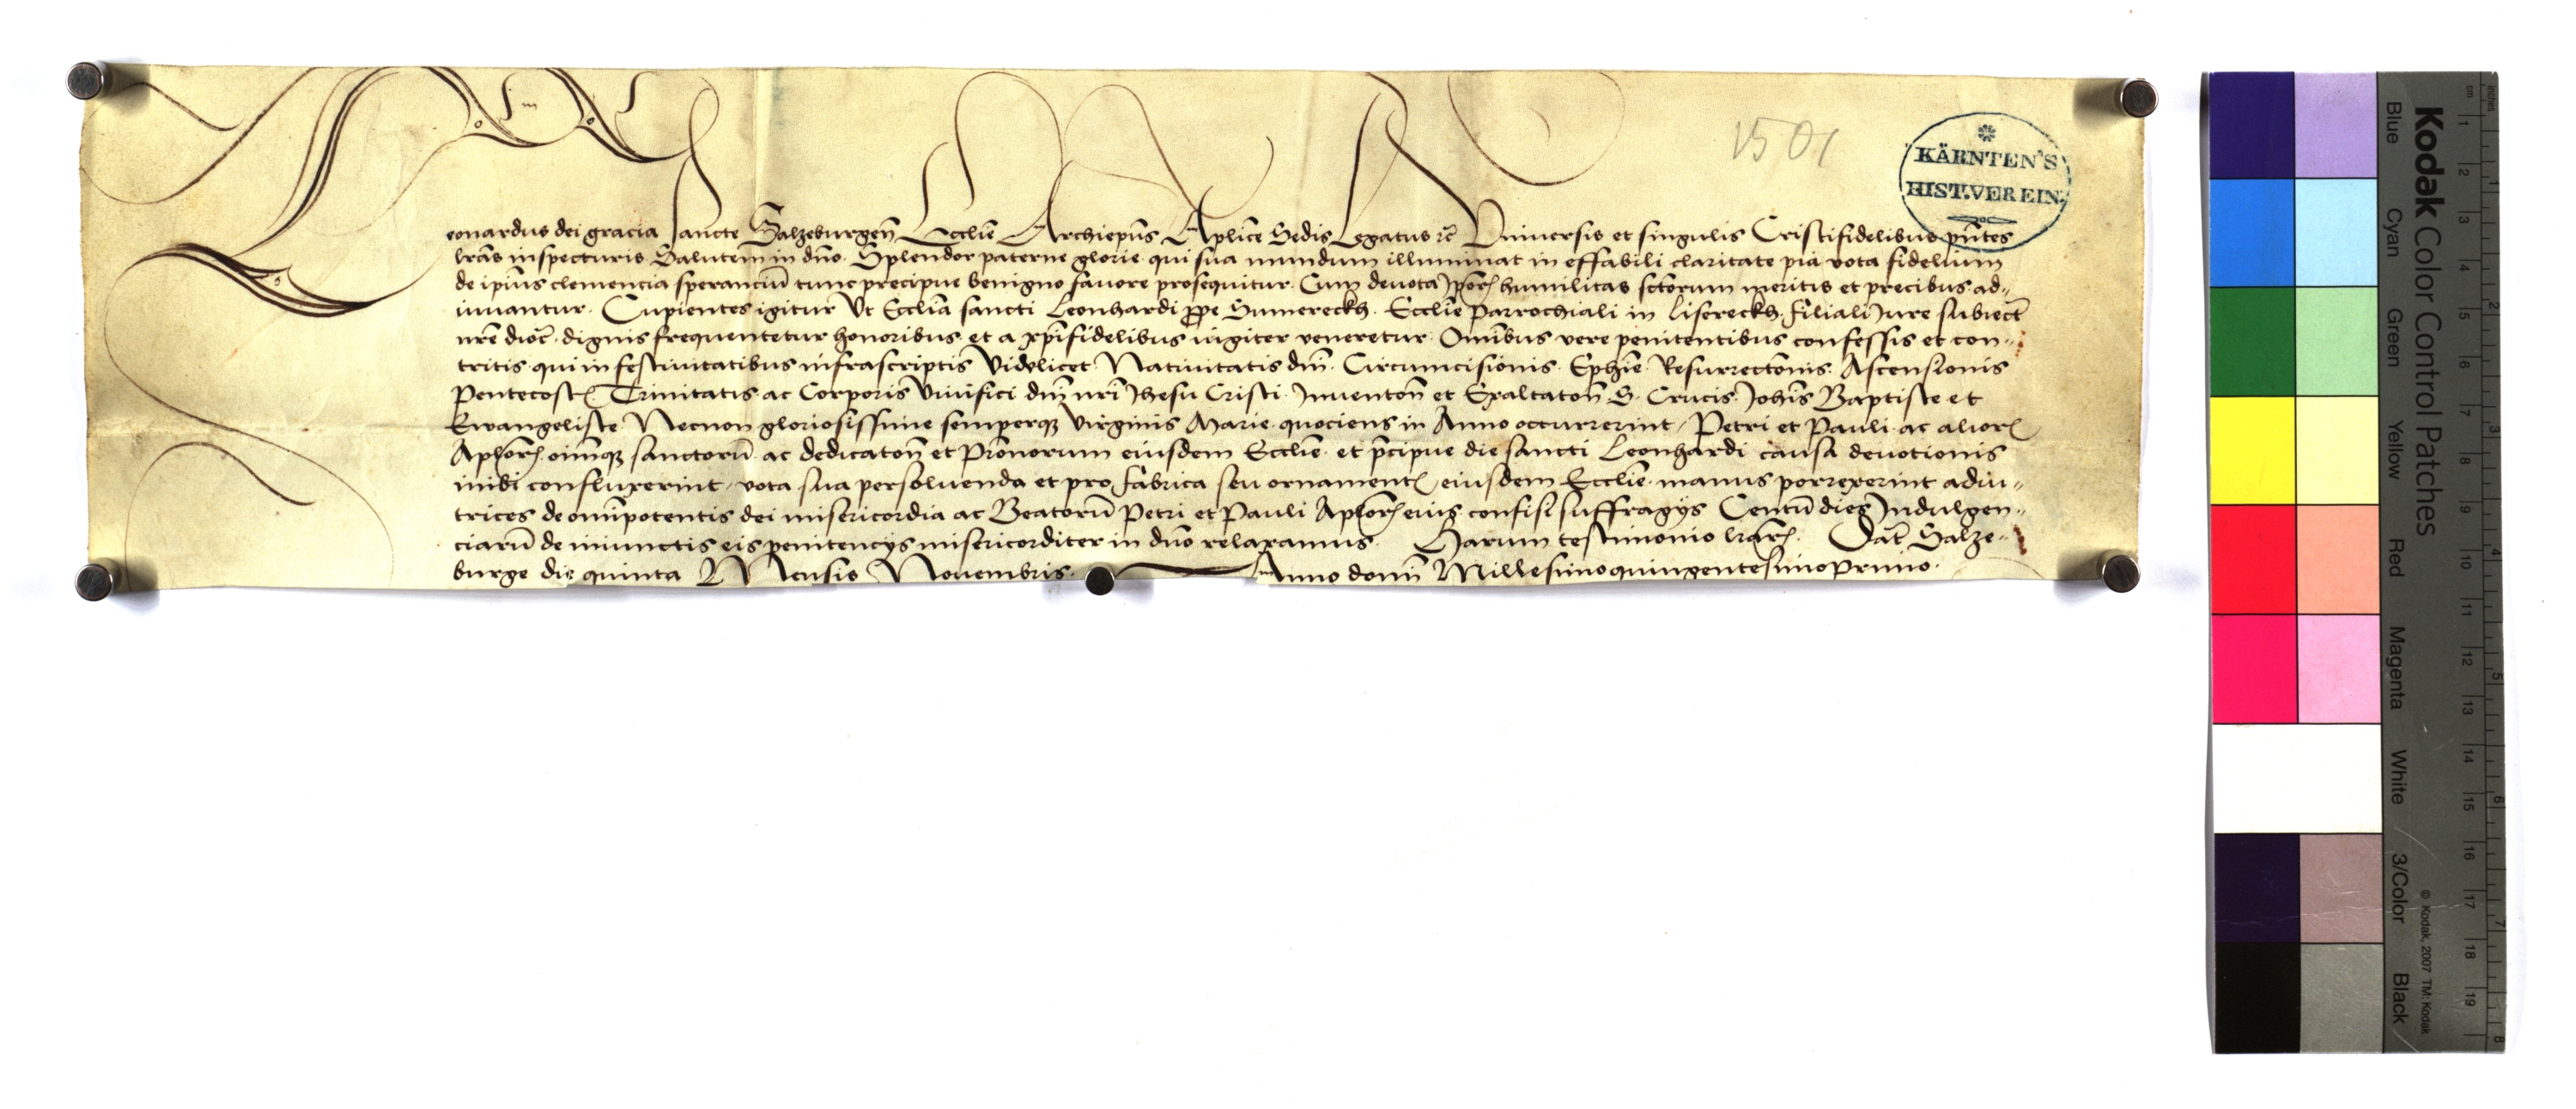 1501
KÄRNTEN'S
HIST. VEREIN.
Leonardus dei gracia Sancte Salzeburgeñ Ecclie Archiepũs Aplice Sedis Legatus ⁊c̃ Vniuersis et singulis Cristifidelibus pñtes
lras inspecturis Salutem in dño. Splendor paterne glorie qui sua mundum illuminat in effabili claritate pia vota fidelium
de ipius clemencia speranciũ tunc precipue benigno fauore prosequitur. Cum deuota Ipoꝝ humilitas sctorum meritis et precibus ad„
iuuantur. Cupientes igitur Vt Ecclia sancti Leonhardi ꝓpe Sumereckh. Ecclie Parrochiali in Lisereckh filiali Iure subiect̃
nr̃e dioc̃. dignis frequentetur honoribus et a xp̃ifidelibus iugiter veneretur. Omĩbus vere penitentibus confessis et con„
tritis qui in festiuitatibus infrascriptis Videlicet Natiuitatis dñi. Circumcisionis. Ephie. Resurrectõnis. Ascensionis
Pentecostẽ Trinitatis ac Corporis Viuifici dñi nr̃i Ihesu Cristi. Inuentoñ et Exaltatoñ S. Crucis. Iohis Baptiste et
Ewangeliste Necnon gloriosissime semperqꝫ Virginis Marie quociens in Anno occurrerint, Petri et Pauli ac alioꝝ
Aploꝝ. oimqꝫ sanctorũ ac dedicatoñ et Prõnorum eiusdem Ecclie. et p̃cipue die sancti Leonhardi causa deuotionis
inibi confluxerint, vota sua persoluenda et pro fabrica seu ornamentꝭ eiusdem Ecclie manus porrexerint adiu„
trices de omĩpotentis dei misericordia ac Beatorũ Petri et Pauli Aploꝝ eius confisi suffragijs Centũ dies Indulgen„
ciarũ de iniunctis eis penitencijs misericorditer in dño relaxamus. Harum testimonio lraꝝ. Dat̃ Salze„
burge die quinta Mensis Nouembris. Anno domĩ Millesimoquingentesimoprimo.
Kodak Color Control Patches
Blue Cyan Green Yellow Red Magenta White 3/Color Black
© Kodak, 2007 TM: Kodak
cm 1 2 3 4 5 6 7 8 9 10 11 12 13 14 15 16 17 18 19
inches 1 2 3 4 5 6 7 8